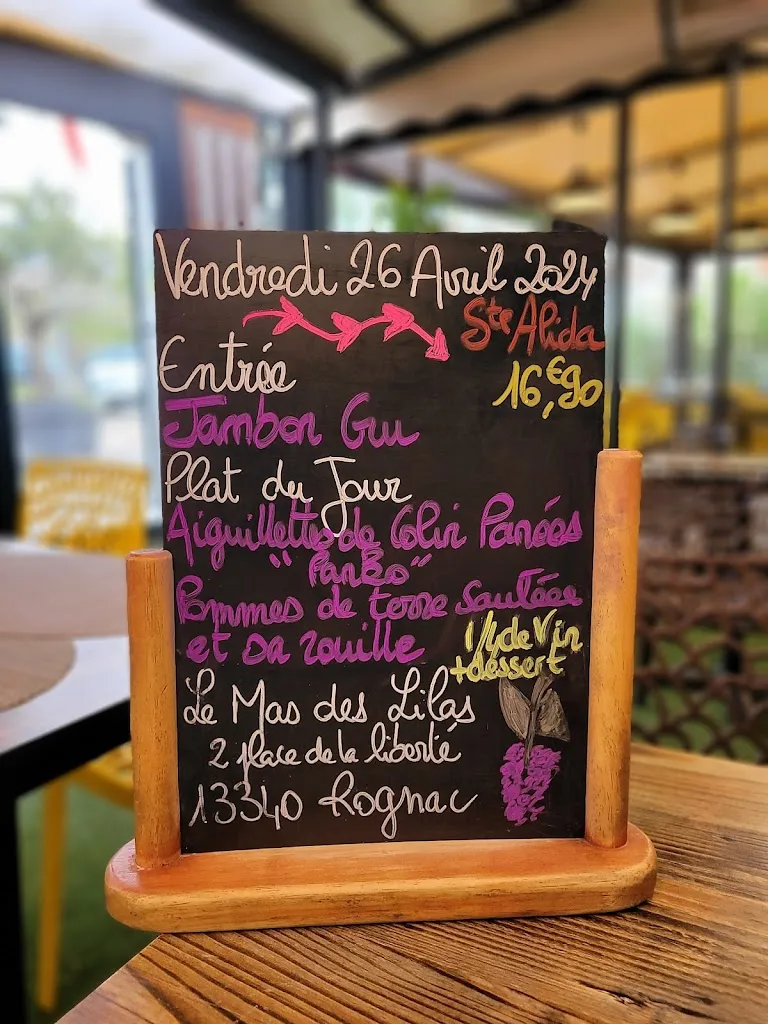 Vendredi 26 Avril 2024
Ste Alida
Entrée
16,€90
Jambon Cru
Plat du Jour
Aiguillettes de Colin Panées
"Panko"
Pommes de terre Sautées
et sa rouille
1/4 de Vin
+dessert
Le Mas des Lilas
2 place de la liberté
13340 Rognac